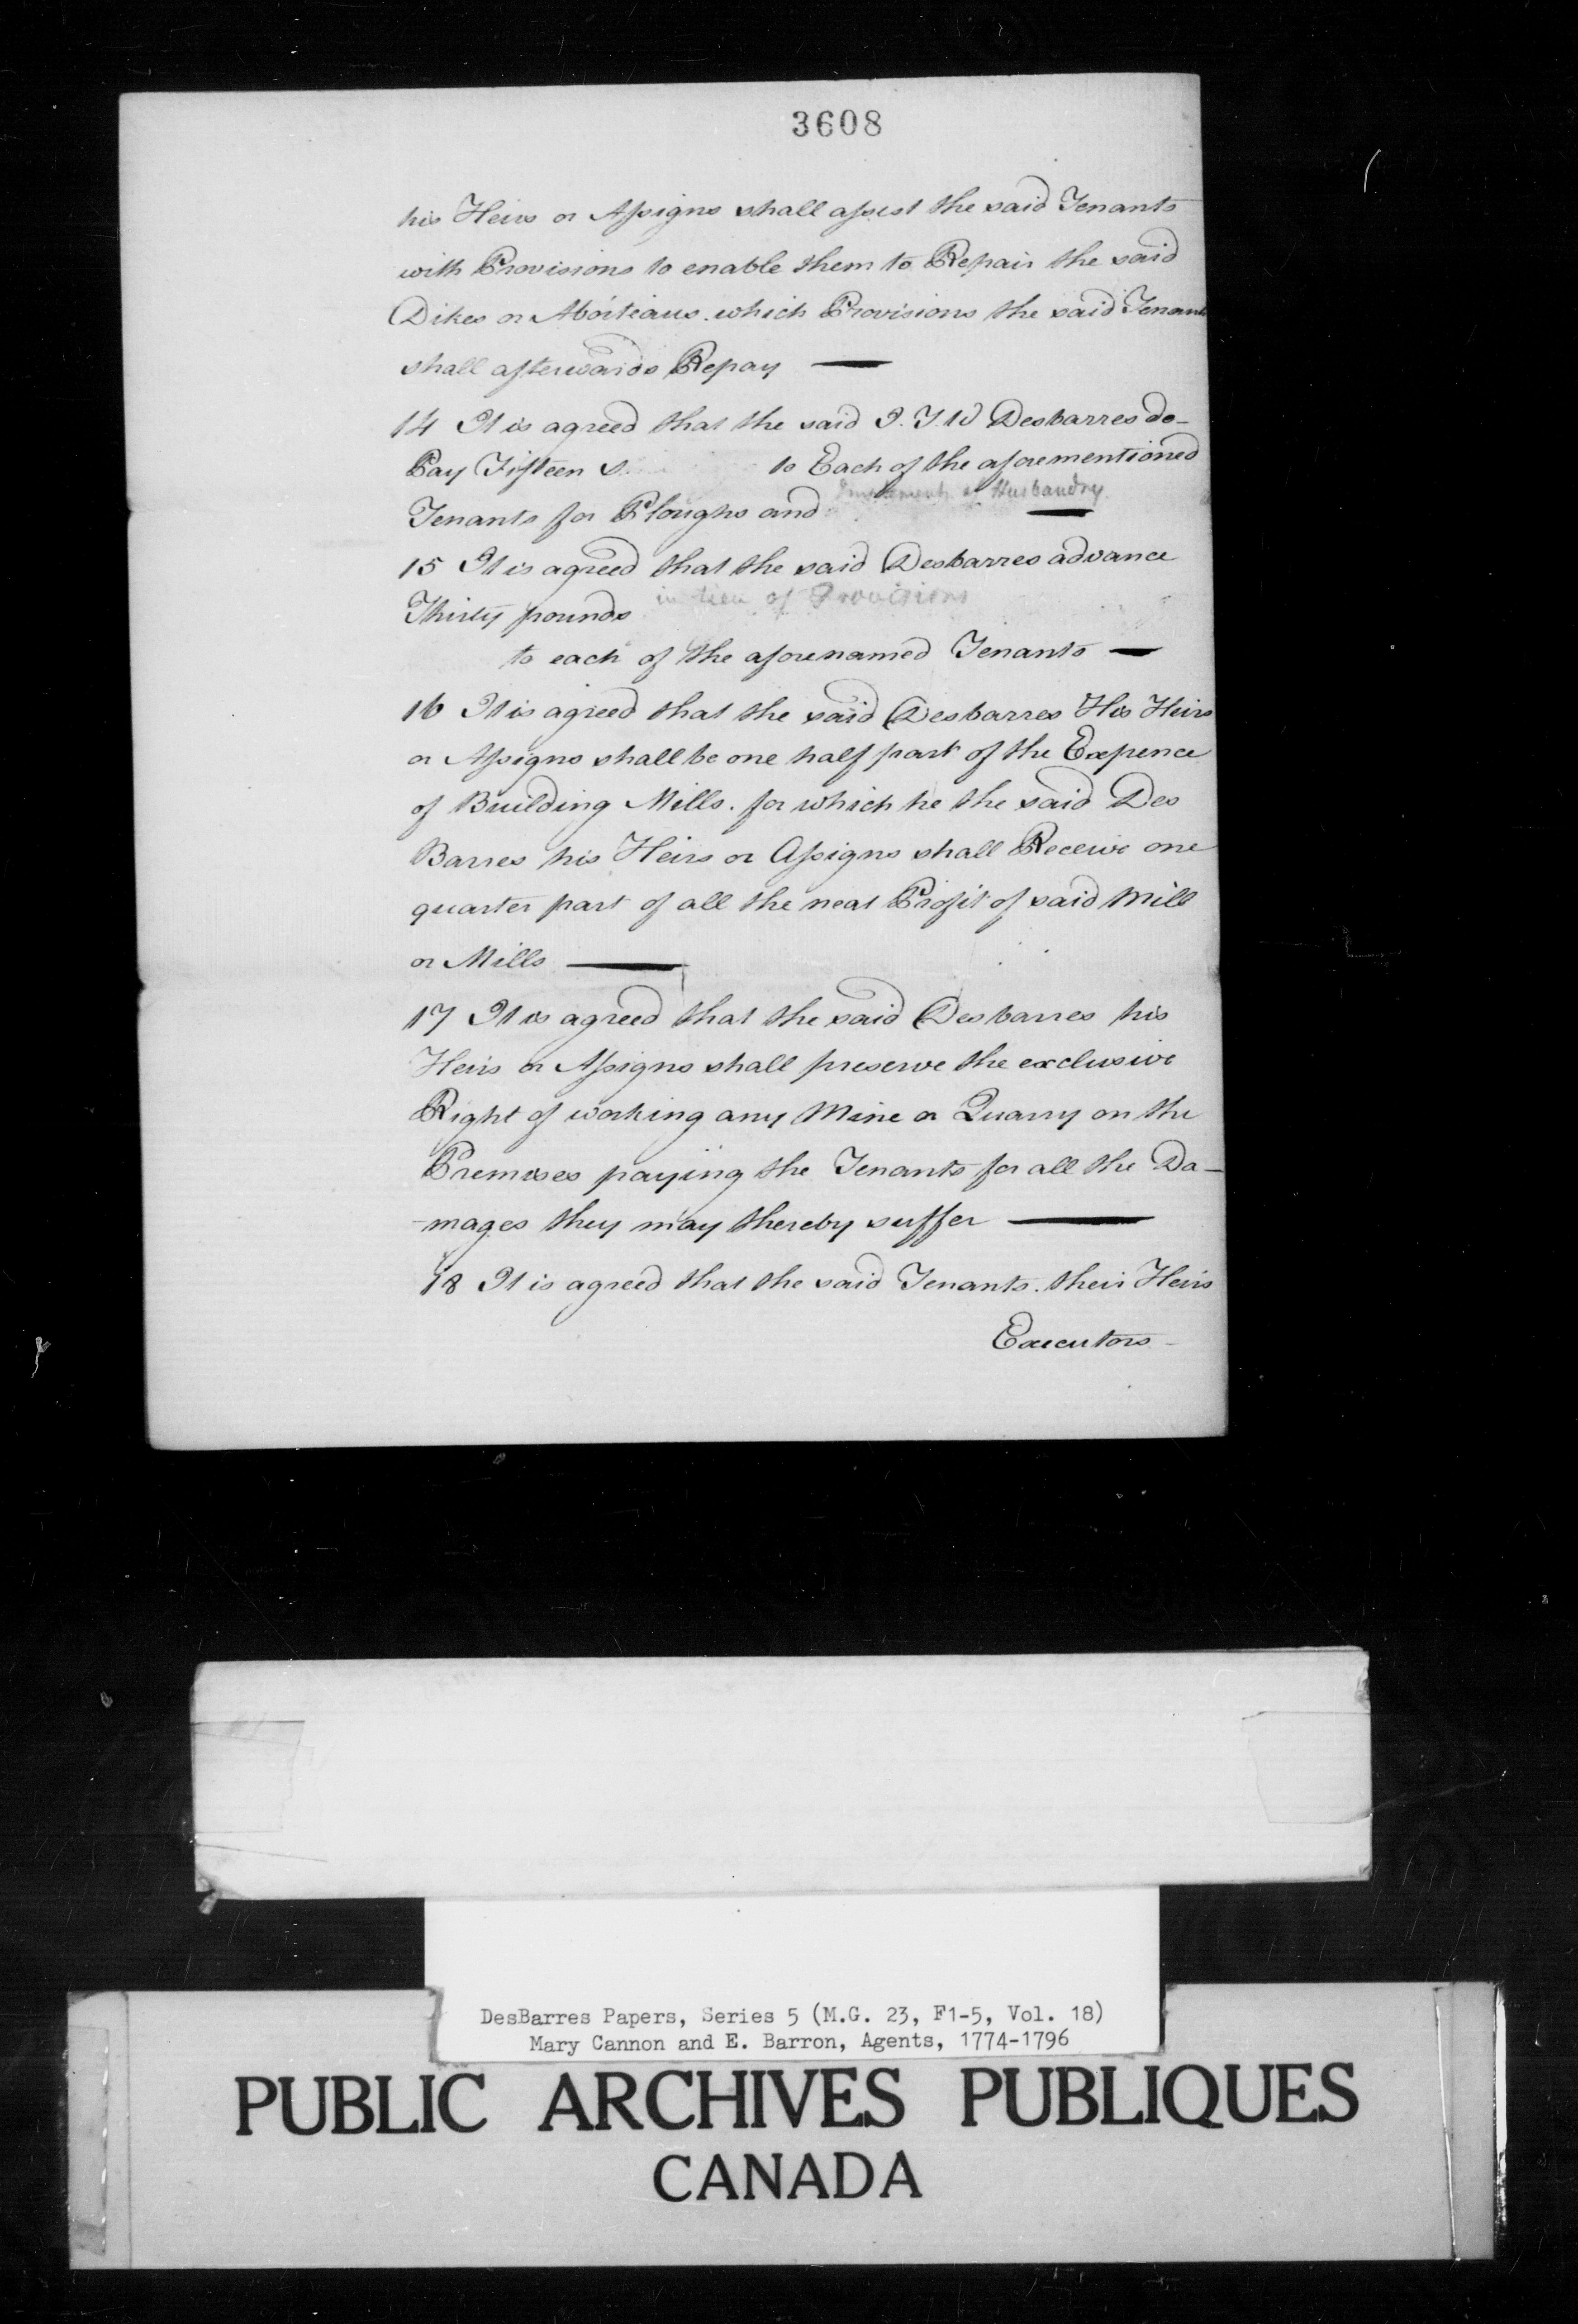 3608
his Heirs or Assigns shall assist the said Tenants
with Provisions to enable them to Repair the said
Dikes or Aboiteaus. which Provisions the said Tenants
shall afterwards Repay —
14 It is agreed that the said J. F. W Desbarres do-
Pay Fifteen to Each of the aforementioned
Tenants for Ploughs and Husbandry —
15 It is agreed that the said Desbarres advance
Thirty pounds in lieu of Provisions
to each of the aforenamed Tenants —
16 It is agreed that the said Desbarres His Heirs
or Assigns shall be one half part of the Expence
of Building Mills. for which he the said Des
Barres his Heirs or Assigns shall Receive one
quarter part of all the neat Profit of said Mill
or Mills —
17 It is agreed that the said Desbarres his
Heirs or Assigns shall preserve the exclusive
Right of working any Mine or Quarry on the
Premises paying the Tenants for all the Da-
-mages they may thereby suffer —
18 It is agreed that the said Tenants. their Heirs
Executors -
DesBarres Papers, Series 5 (M.G. 23, F1-5, Vol. 18)
Mary Cannon and E. Barron, Agents, 1774-1796
PUBLIC ARCHIVES PUBLIQUES
CANADA